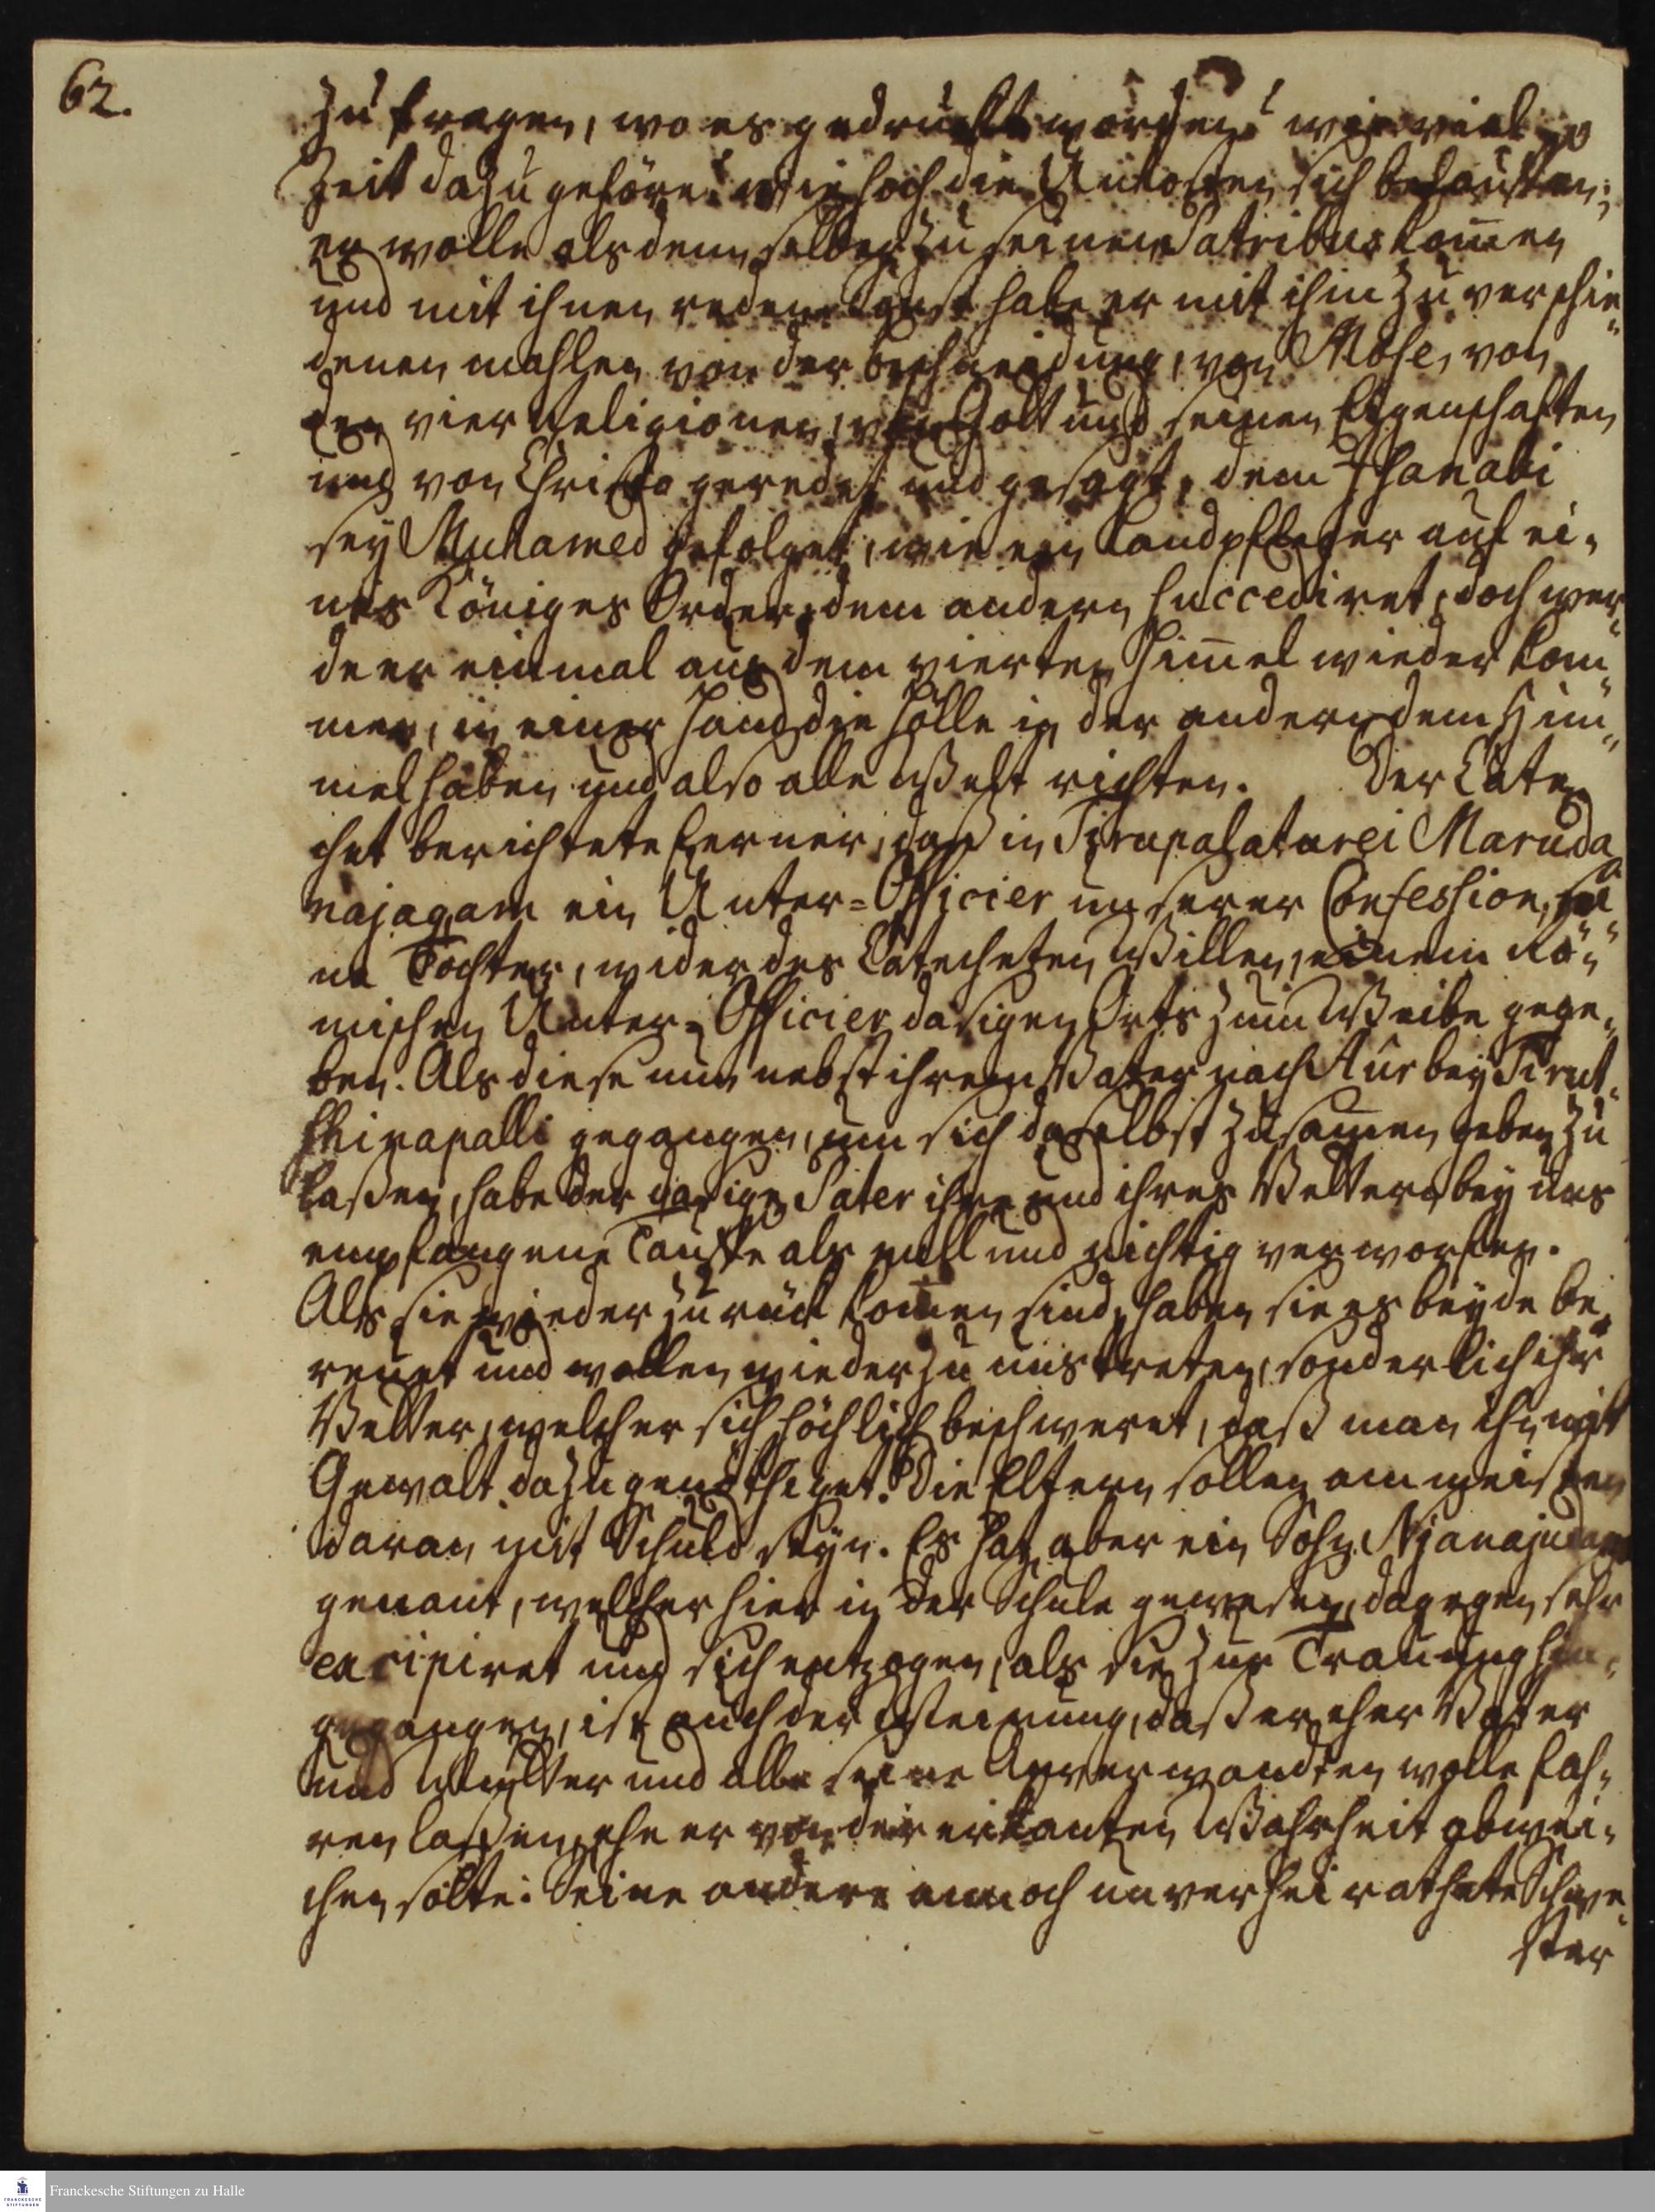 62.
zu fragen, wo es gedruckt worden? wie viel
Zeit dazu gehöre? wie hoch die Unkosten sich belauffen?
er wolle alsdenn selber zu seinen Patribus kom̄en
und mit ihnen reden. Sonst habe er mit ihm zu verschie„
denen mahlen von der Beschneidung, von Mose, von
den vier Religionen, von Gott und seinen Eigenschafften
und von Christo geredet und gesagt, dem Ishanabi
sey Muhamed gefolget, wie ein Landpfleger auf ei„
nes Königes Order, dem andern succediret, doch wer„
de er einmal aus dem vierten Him̄el wieder kom„
men, in einer Hand die Hölle in der andern den Him„
mel haben und also alle Welt richten. Der Cate„
chet berichtete ferner, daß in Tirupalaturei Maruda
najagam ein Unter=Officier unserer Confession, sei„
ne Tochter, wider des Catecheten Willen, einem Rö„
mischen Unter=Officier dasigen Orts zum Weibe gege„
ben. Als diese nun nebst ihrem Vater nach Aur bey Tirut„
chinapalli gegangen, um sich daselbst zusam̄en geben zu
laßen, habe der dasige Pater ihre und ihres Vetters bey uns
empfangene Tauffe als null und nichtig verworfen.
Als sie wieder zurück kom̄en sind, haben sie es beyde be„
reuet und wollen wieder zu uns treten, sonderlich ihr
Vetter, welcher sich höchlich beschweret, daß man ihn mit
Gewalt dazu genöthiget. Die Eltern sollen am meisten
daran mit Schuld seyn. Es hat aber ein Sohn Njanajudam
genant, welcher hier in der Schule gewesen, dagegen sehr
excipiret und sich entzogen, als sie zur Trauung hin„
gegangen, ist auch der Meinung, daß er eher Vater
und Mutter und alle seine Anverwandten wolle fah„
ren laßen, ehe er von der erkanten Wahrheit abwei„
chen solte. Seine andere annoch unverheirathete Schwe„
ster
Franckesche Stiftungen zu Halle
FRANCKESCHE
STIFTUNGEN